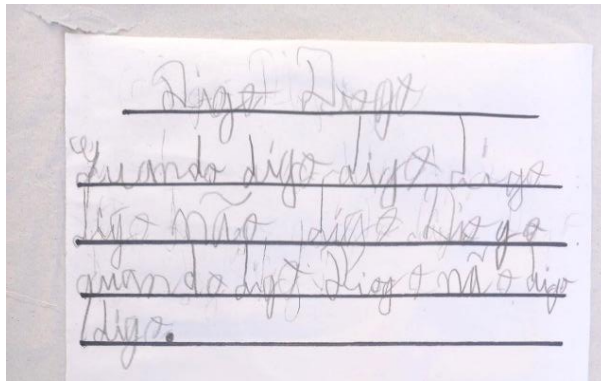 Digo Diogo
Quando digo digo digo
digo não digo Diogo
quando digo Diogo não digo
digo.